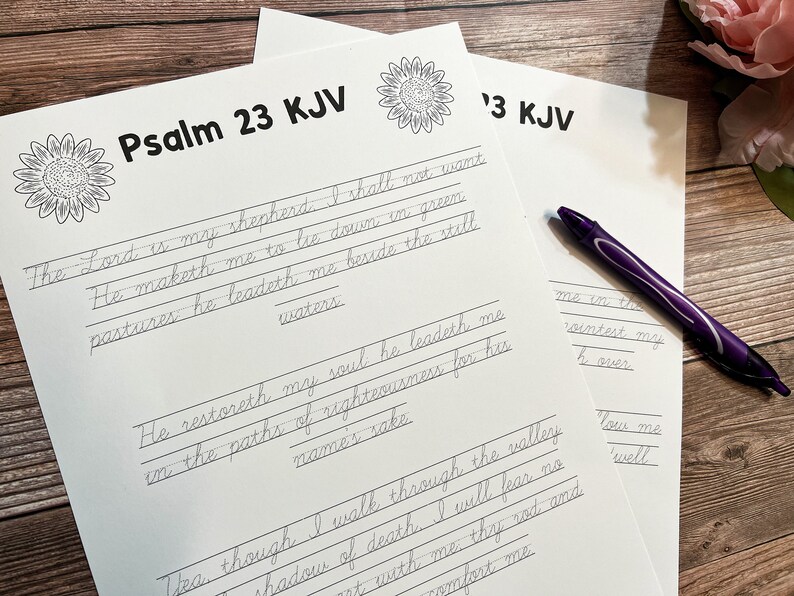 Psalm 23 KJV
The Lord is my shepherd; I shall not want
He maketh me to lie down in green
pastures: he leadeth me beside the still
waters.
He restoreth my soul: he leadeth me
in the paths of righteousness for his
name's sake.
Yea, though I walk through the valley
shadow of death, I will fear no
with me; thy rod and
comfort me
23 KJV
me in the
my
over
me